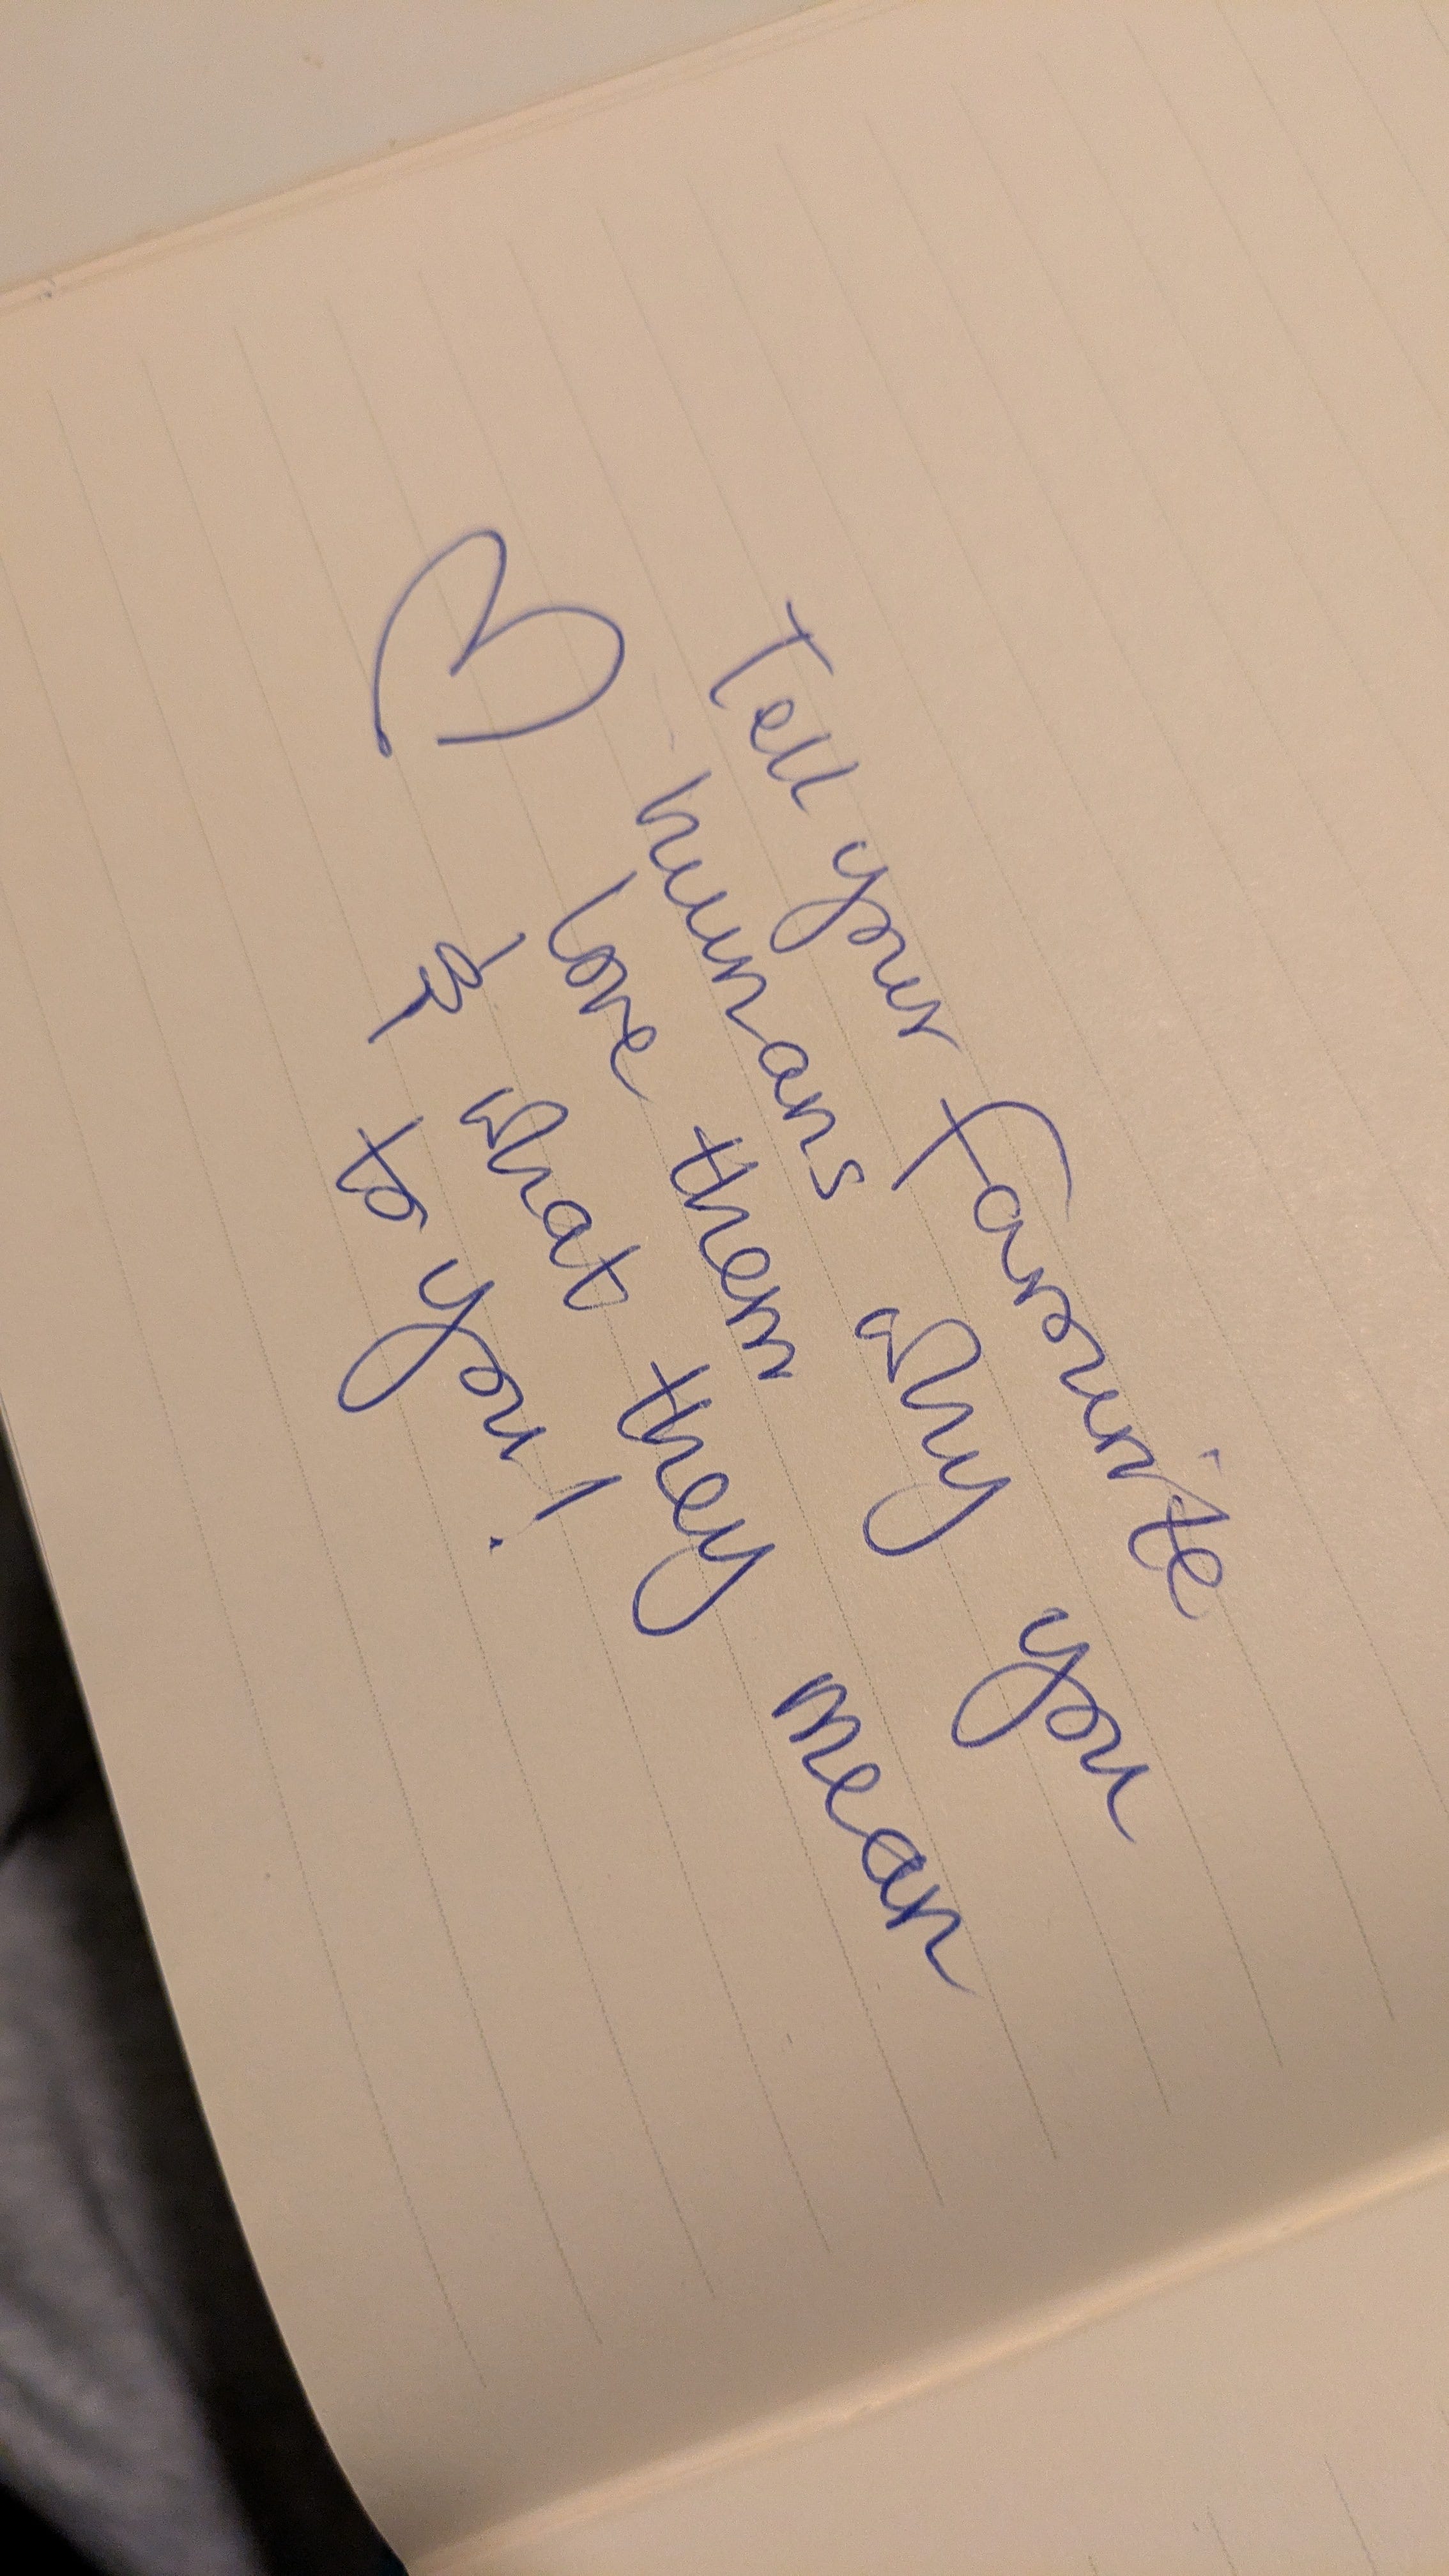 Tell your favourite
humans why you
love them
& what they mean
to you!